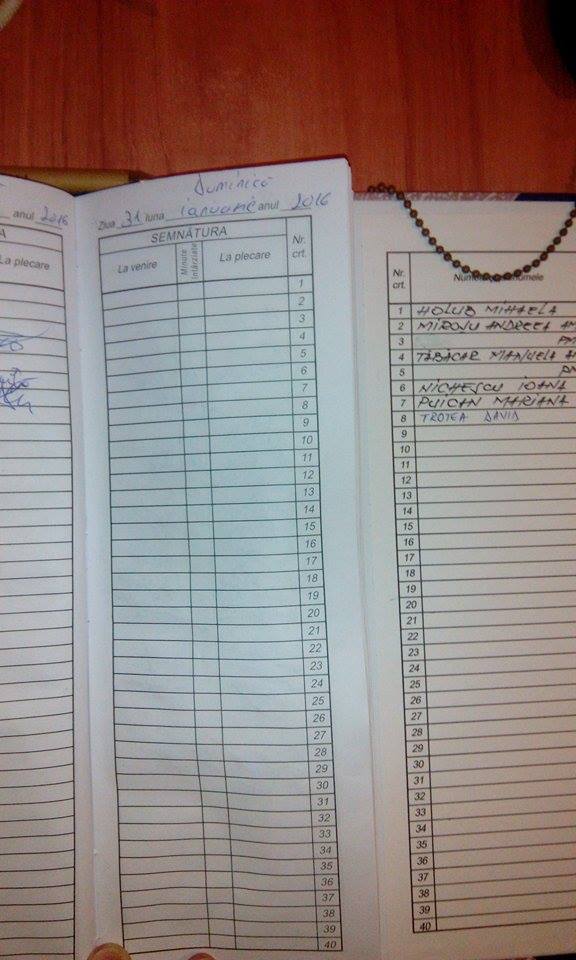 anul 2016
La plecare
Duminică
Ziua 31 luna ianuarie anul 2016
SEMNĂTURA
Nr. crt.
La venire
Minute întârziate
La plecare
1
2
3
4
5
6
7
8
9
10
11
12
13
14
15
16
17
18
19
20
21
22
23
24
25
26
27
28
29
30
31
32
33
34
35
36
37
38
39
40
Nr. crt.
1 HOLUB MIHAELA
2 MIROIU ANDREEA AM
3 PM
4 TABACAR MANUELA AM
5 PM
6 NICHESCU IOANA
7 PUICAN MARIANA
8 TROTEA DAVID
9
10
11
12
13
14
15
16
17
18
19
20
21
22
23
24
25
26
27
28
29
30
31
32
33
34
35
36
37
38
39
40